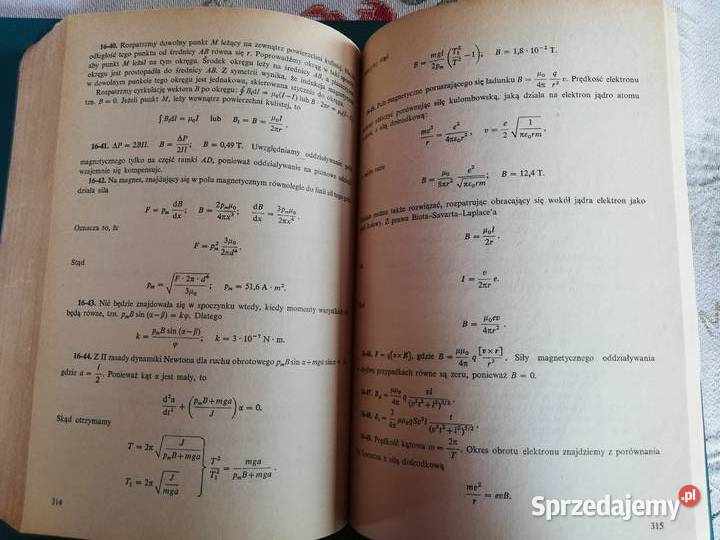 16-40. Rozpatrzmy dowolny punkt M leżący na zewnątrz powierzchni kulistej.
odległość tego punktu od średnicy AB równa się r. Poprowadźmy okrąg w taki
aby punkt M leżał na tym okręgu. Środek okręgu leży na średnicy AB, a
okręgu jest prostopadła do średnicy AB. Z symetrii wynika, że indukcja
w dowolnym punkcie tego okręgu jest jednakowa, skierowana stycznie do okręgu.
Rozpatrzmy cyrkulację wektora B po okręgu: ∮ Bₗdl = μ₀(I−I) lub B · 2πr =
tzn. B = 0. Jeżeli punkt M, leży wewnątrz powierzchni kulistej, to
∫ Bₗdl = μ₀I lub Bₗ = B = μ₀I / 2πr
16-41. ΔP = 2BIl. B = ΔP / 2Il; B = 0,49 T. Uwzględniamy oddziaływanie
magnetycznego tylko na część ramki AD, ponieważ oddziaływanie na pionowe
wzajemnie się kompensuje.
16-42. Na magnes, znajdujący się w polu magnetycznym równolegle do linii sił tego
działa siła
F = pₘ dB/dx; B = 2pₘμ₀ / 4πx³; dB/dx = 3pₘμ₀ / 2πx⁴
Oznacza to, że
F = pₘ² 3μ₀ / 2πd⁴.
Stąd
pₘ = √(F · 2π · d⁴ / 3μ₀); pₘ = 51,6 A · m².
16-43. Nić będzie znajdowała się w spoczynku wtedy, kiedy momenty
będą równe, tzn. pₘB sin (α−β) = kφ. Dlatego
k = pₘB sin (α−β) / φ; k = 3 · 10⁻⁷ N · m.
16-44. Z II zasady dynamiki Newtona dla ruchu obrotowego pₘB sin α + mga sin α =
gdzie a = l/2. Ponieważ kąt α jest mały, to
d²α/dt² + (pₘB + mga / J) α = 0.
Skąd otrzymamy
T = 2π √(J / pₘB + mga)
T₁ = 2π √(J / mga)
T²/T₁² = mga / pₘB + mga.
314
B = mgl / 2pₘ (T₁²/T² − 1); B = 1,8 · 10⁻² T.
Pole magnetyczne poruszającego się ładunku B = μ₀/4π q/r² v. Prędkość elektronu
porównując siłę kulombowską, jaką działa na elektron jądro atomu
z siłą dośrodkową:
mv²/r = e² / 4πε₀r², v = e/2 √(1 / πε₀rm)
razie
B = μ₀/8πr² e²/√πε₀rm; B = 12,4 T.
można także rozwiązać, rozpatrując obracający się wokół jądra elektron jako
kołowy. Z prawa Biota-Savarta-Laplace'a
B = μ₀I / 2r.
I = v / 2πr e.
B = μ₀ev / 4πr².
16-46. F = q[v×B], gdzie B = μμ₀/4π q [v×r]/r³. Siły magnetycznego oddziaływania
przypadkach równe są zeru, ponieważ B = 0.
16-47.
16-48.
Prędkość kątowa ω = 2π/T. Okres obrotu elektronu znajdziemy z porównania
z siłą dośrodkową
mv²/r = evB.
315
Sprzedajemy.pl